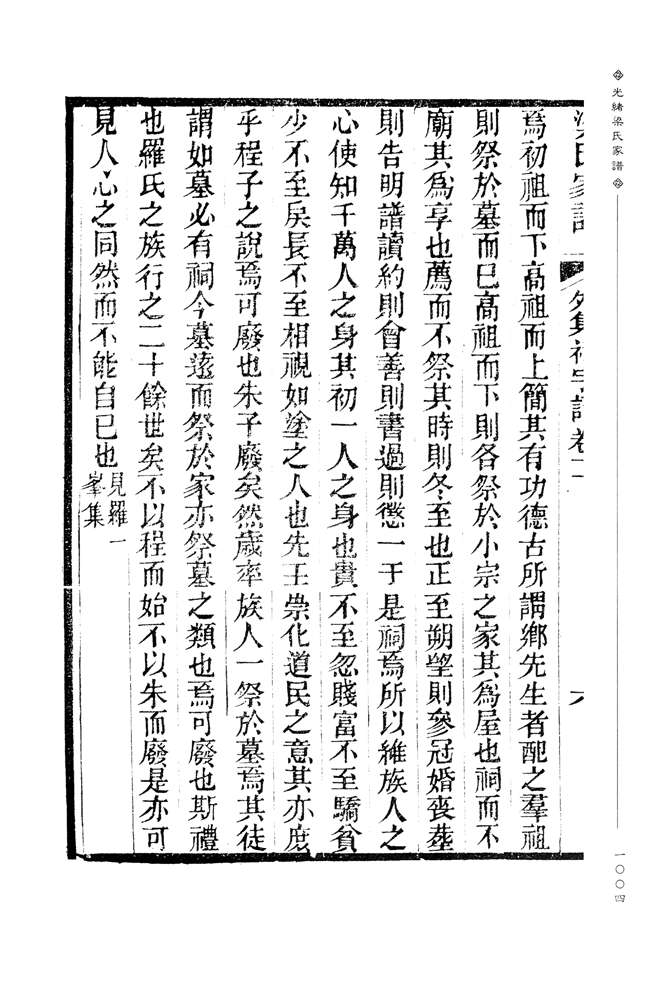 光緒梁氏家譜
一〇〇四
梁氏家譜 外集祠宇譜卷二 六
焉初祖而下高祖而上簡其有功德古所謂鄉先生者配之羣祖
則祭於墓而已高祖而下則各祭於小宗之家其為屋也祠而不
廟其為享也薦而不祭其時則冬至也正至朔望則參冠婚喪塟
則告明譜讀約則會善則書過則懲一于是祠焉所以維族人之
心使知千萬人之身其初一人之身也貴不至忽賤富不至驕貧
少不至戾長不至相視如塗之人也先王崇化道民之意其亦庶
乎程子之說焉可廢也朱子廢矣然歲率族人一祭於墓焉其徒
謂如墓必有祠今墓遠而祭於家亦祭墓之類也焉可廢也斯禮
也羅氏之族行之二十餘世矣不以程而始不以朱而廢是亦可
見人心之同然而不能自已也見羅一
峯集